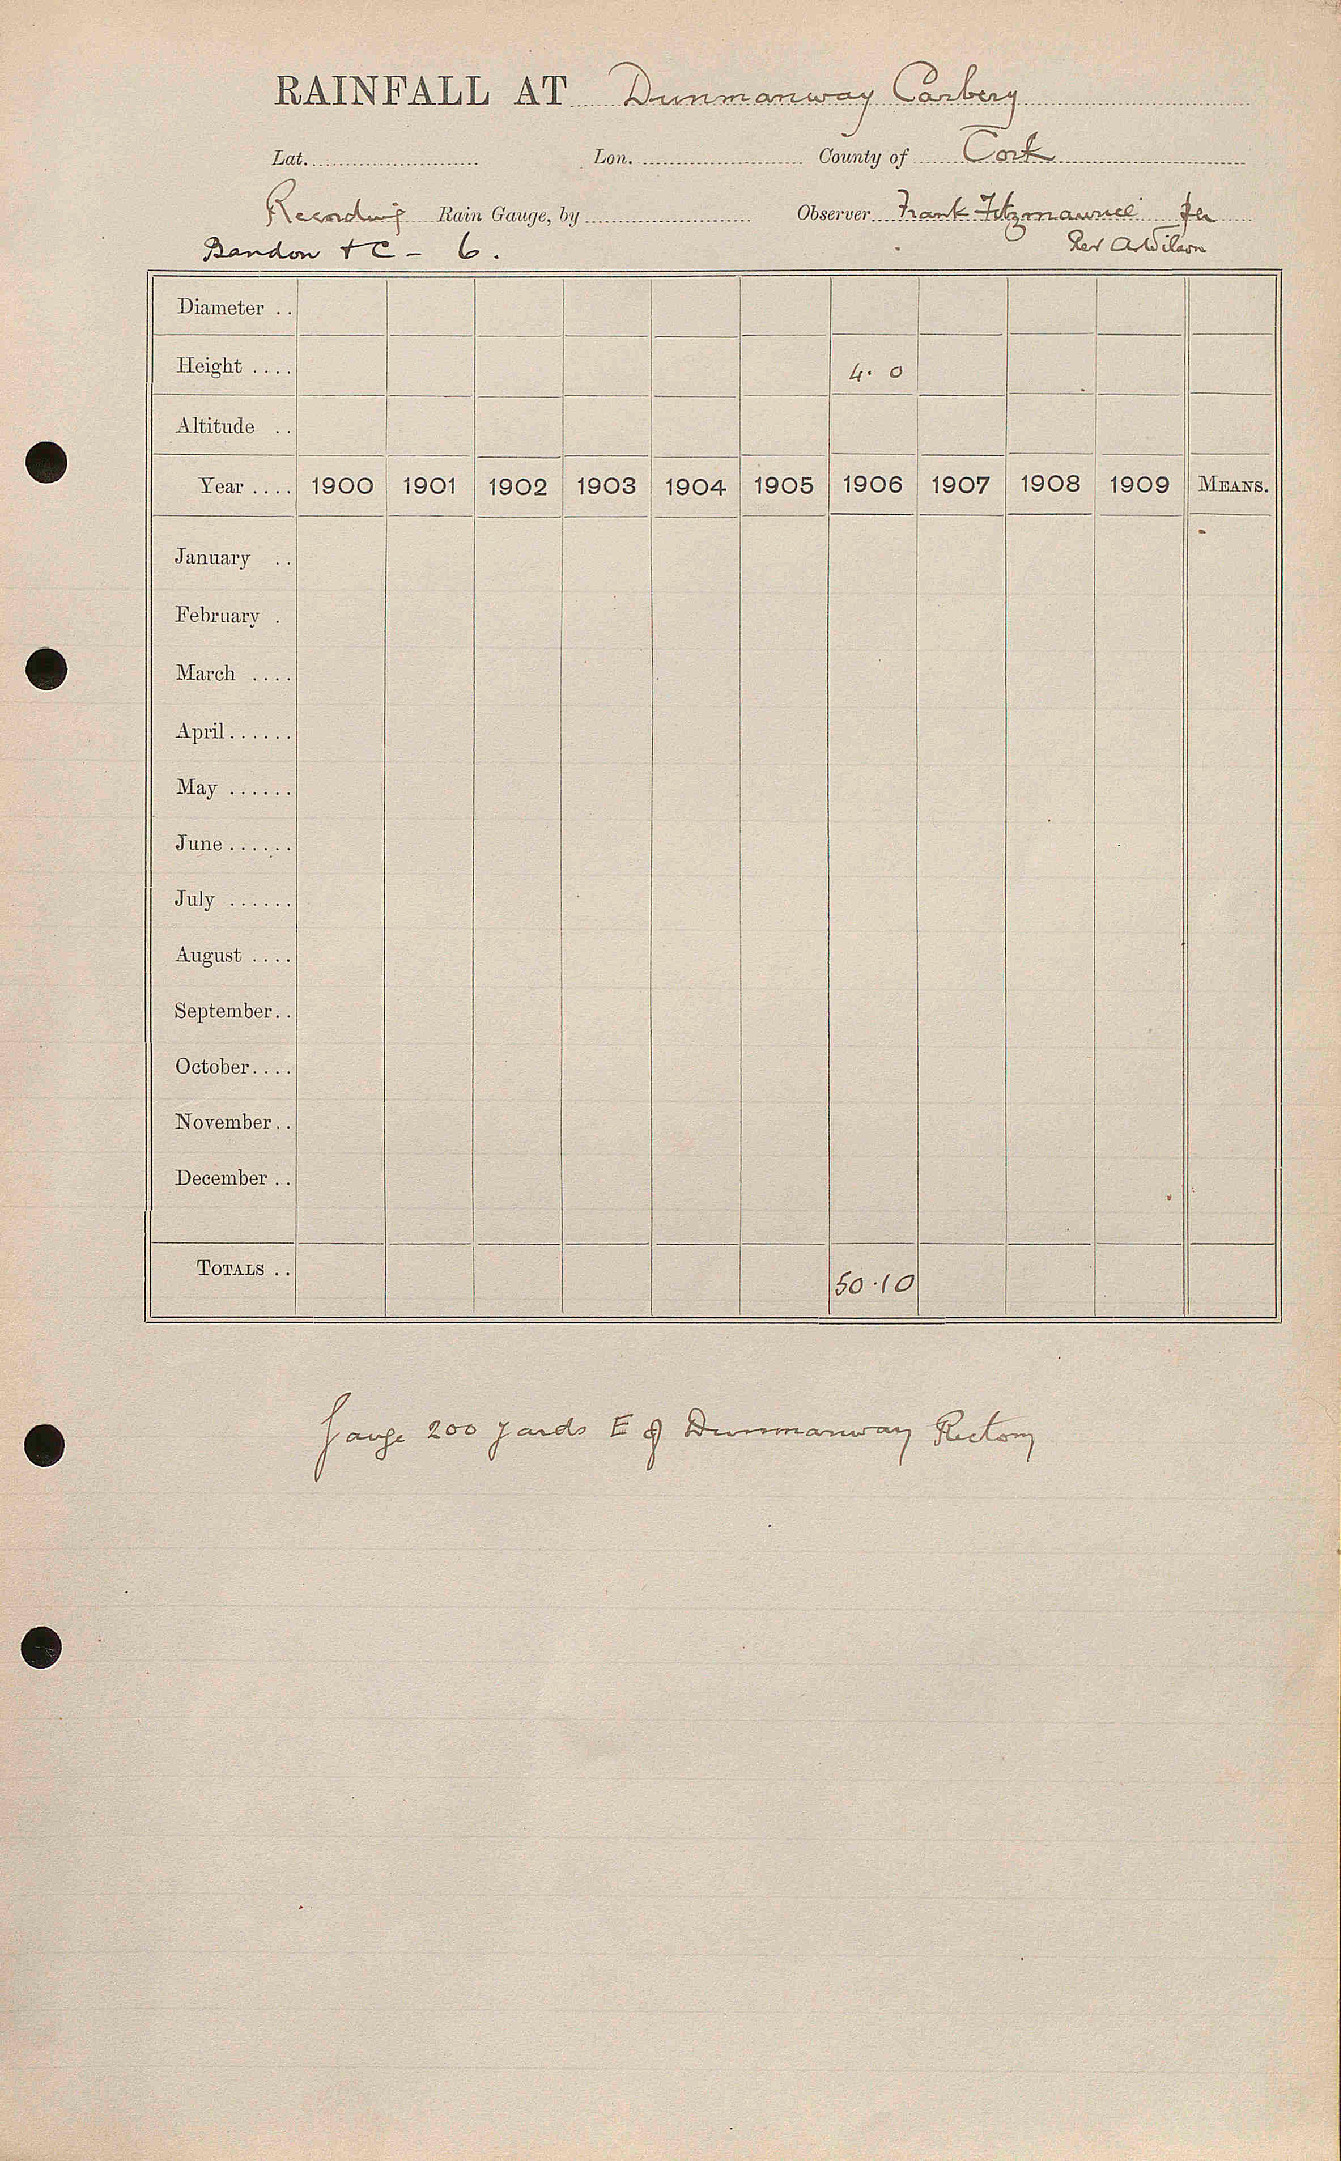 RAINFALL AT Dunmanway Carbery
Lat. Lon. County of Cork
Recording Rain Gauge, by Observer Frank Fitzmaurice per
Bandon + C - 6. Rev A Wilson
Diameter ..
Height .... 4. 0
Altitude ..
Year .... 1900 1901 1902 1903 1904 1905 1906 1907 1908 1909 MEANS.
January ..
February .
March ....
April ......
May ......
June ......
July ......
August ....
September ..
October ....
November ..
December ..
TOTALS .. 50.10
Gauge 200 yards E of Dunmanway Rectory